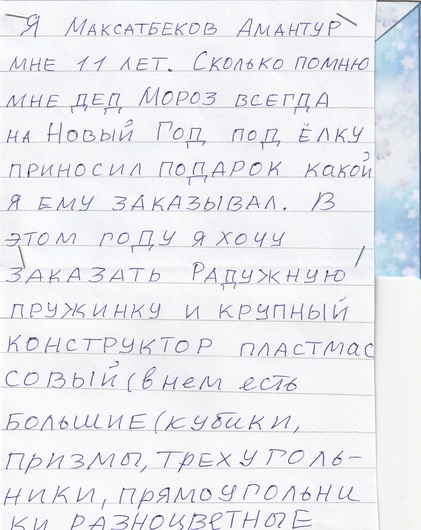 Я МАКСАТБЕКОВ АМАНТУР
МНЕ 11 ЛЕТ. СКОЛЬКО ПОМНЮ
МНЕ ДЕД МОРОЗ ВСЕГДА
НА НОВЫЙ ГОД ПОД ЁЛКУ
ПРИНОСИЛ ПОДАРОК КАКОЙ
Я ЕМУ ЗАКАЗЫВАЛ. В
ЭТОМ ГОДУ Я ХОЧУ
ЗАКАЗАТЬ РАДУЖНУЮ
ПРУЖИНКУ И КРУПНЫЙ
КОНСТРУКТОР ПЛАСТМАС
СОВЫЙ (в нем есть
БОЛЬШИЕ (КУБИКИ,
ПРИЗМЫ, ТРЕХУГОЛЬ-
НИКИ, ПРЯМОУГОЛЬНИ
КИ РАЗНОЦВЕТНЫЕ